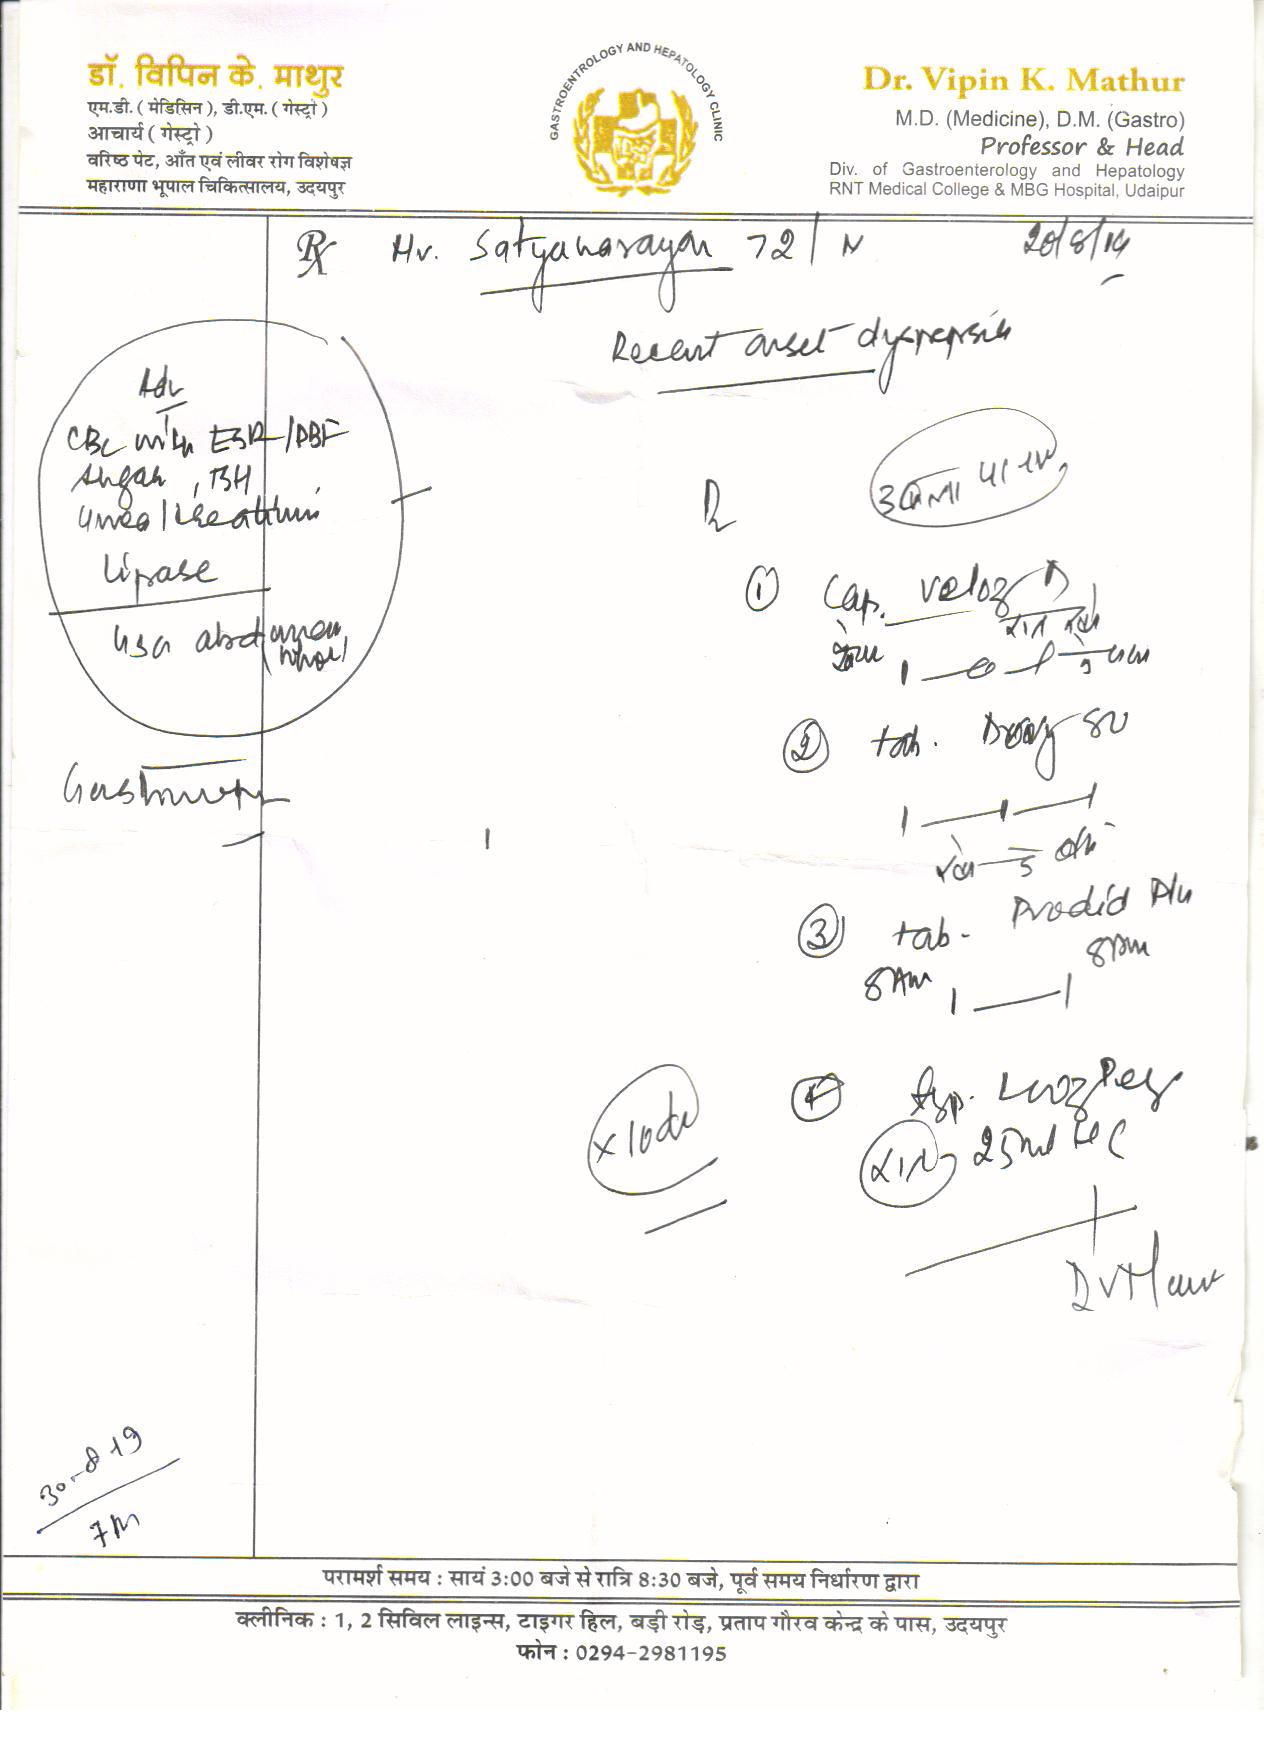 डॉ. विपिन के. माथुर
एम.डी. ( मेडिसिन ), डी.एम. ( गेस्ट्रो )
आचार्य ( गेस्ट्रो )
वरिष्ठ पेट, आँत एवं लीवर रोग विशेषज्ञ
महाराणा भूपाल चिकित्सालय, उदयपुर
GASTROENTROLOGY AND HEPATOLOGY CLINIC
Dr. Vipin K. Mathur
M.D. (Medicine), D.M. (Gastro)
Professor & Head
Div. of Gastroenterology and Hepatology
RNT Medical College & MBG Hospital, Udaipur
Rx Mr. Satyanarayan 72/M 20/8/19
Recent onset dyspepsia
Adv
CBC with ESR/PBF
Sugar,
Urea/Creatinine
Lipase
USG abdomen
(whole)
① Cap. Veloz D
1—0—1
② tab. 80
1—1—1
③ tab. Prodid
8AM 1—1 8PM
④ Syp. Looz Peg
25ml
x10d
30-8-19
परामर्श समय : सायं 3:00 बजे से रात्रि 8:30 बजे, पूर्व समय निर्धारण द्वारा
क्लीनिक : 1, 2 सिविल लाइन्स, टाइगर हिल, बड़ी रोड़, प्रताप गौरव केन्द्र के पास, उदयपुर
फोन : 0294-2981195